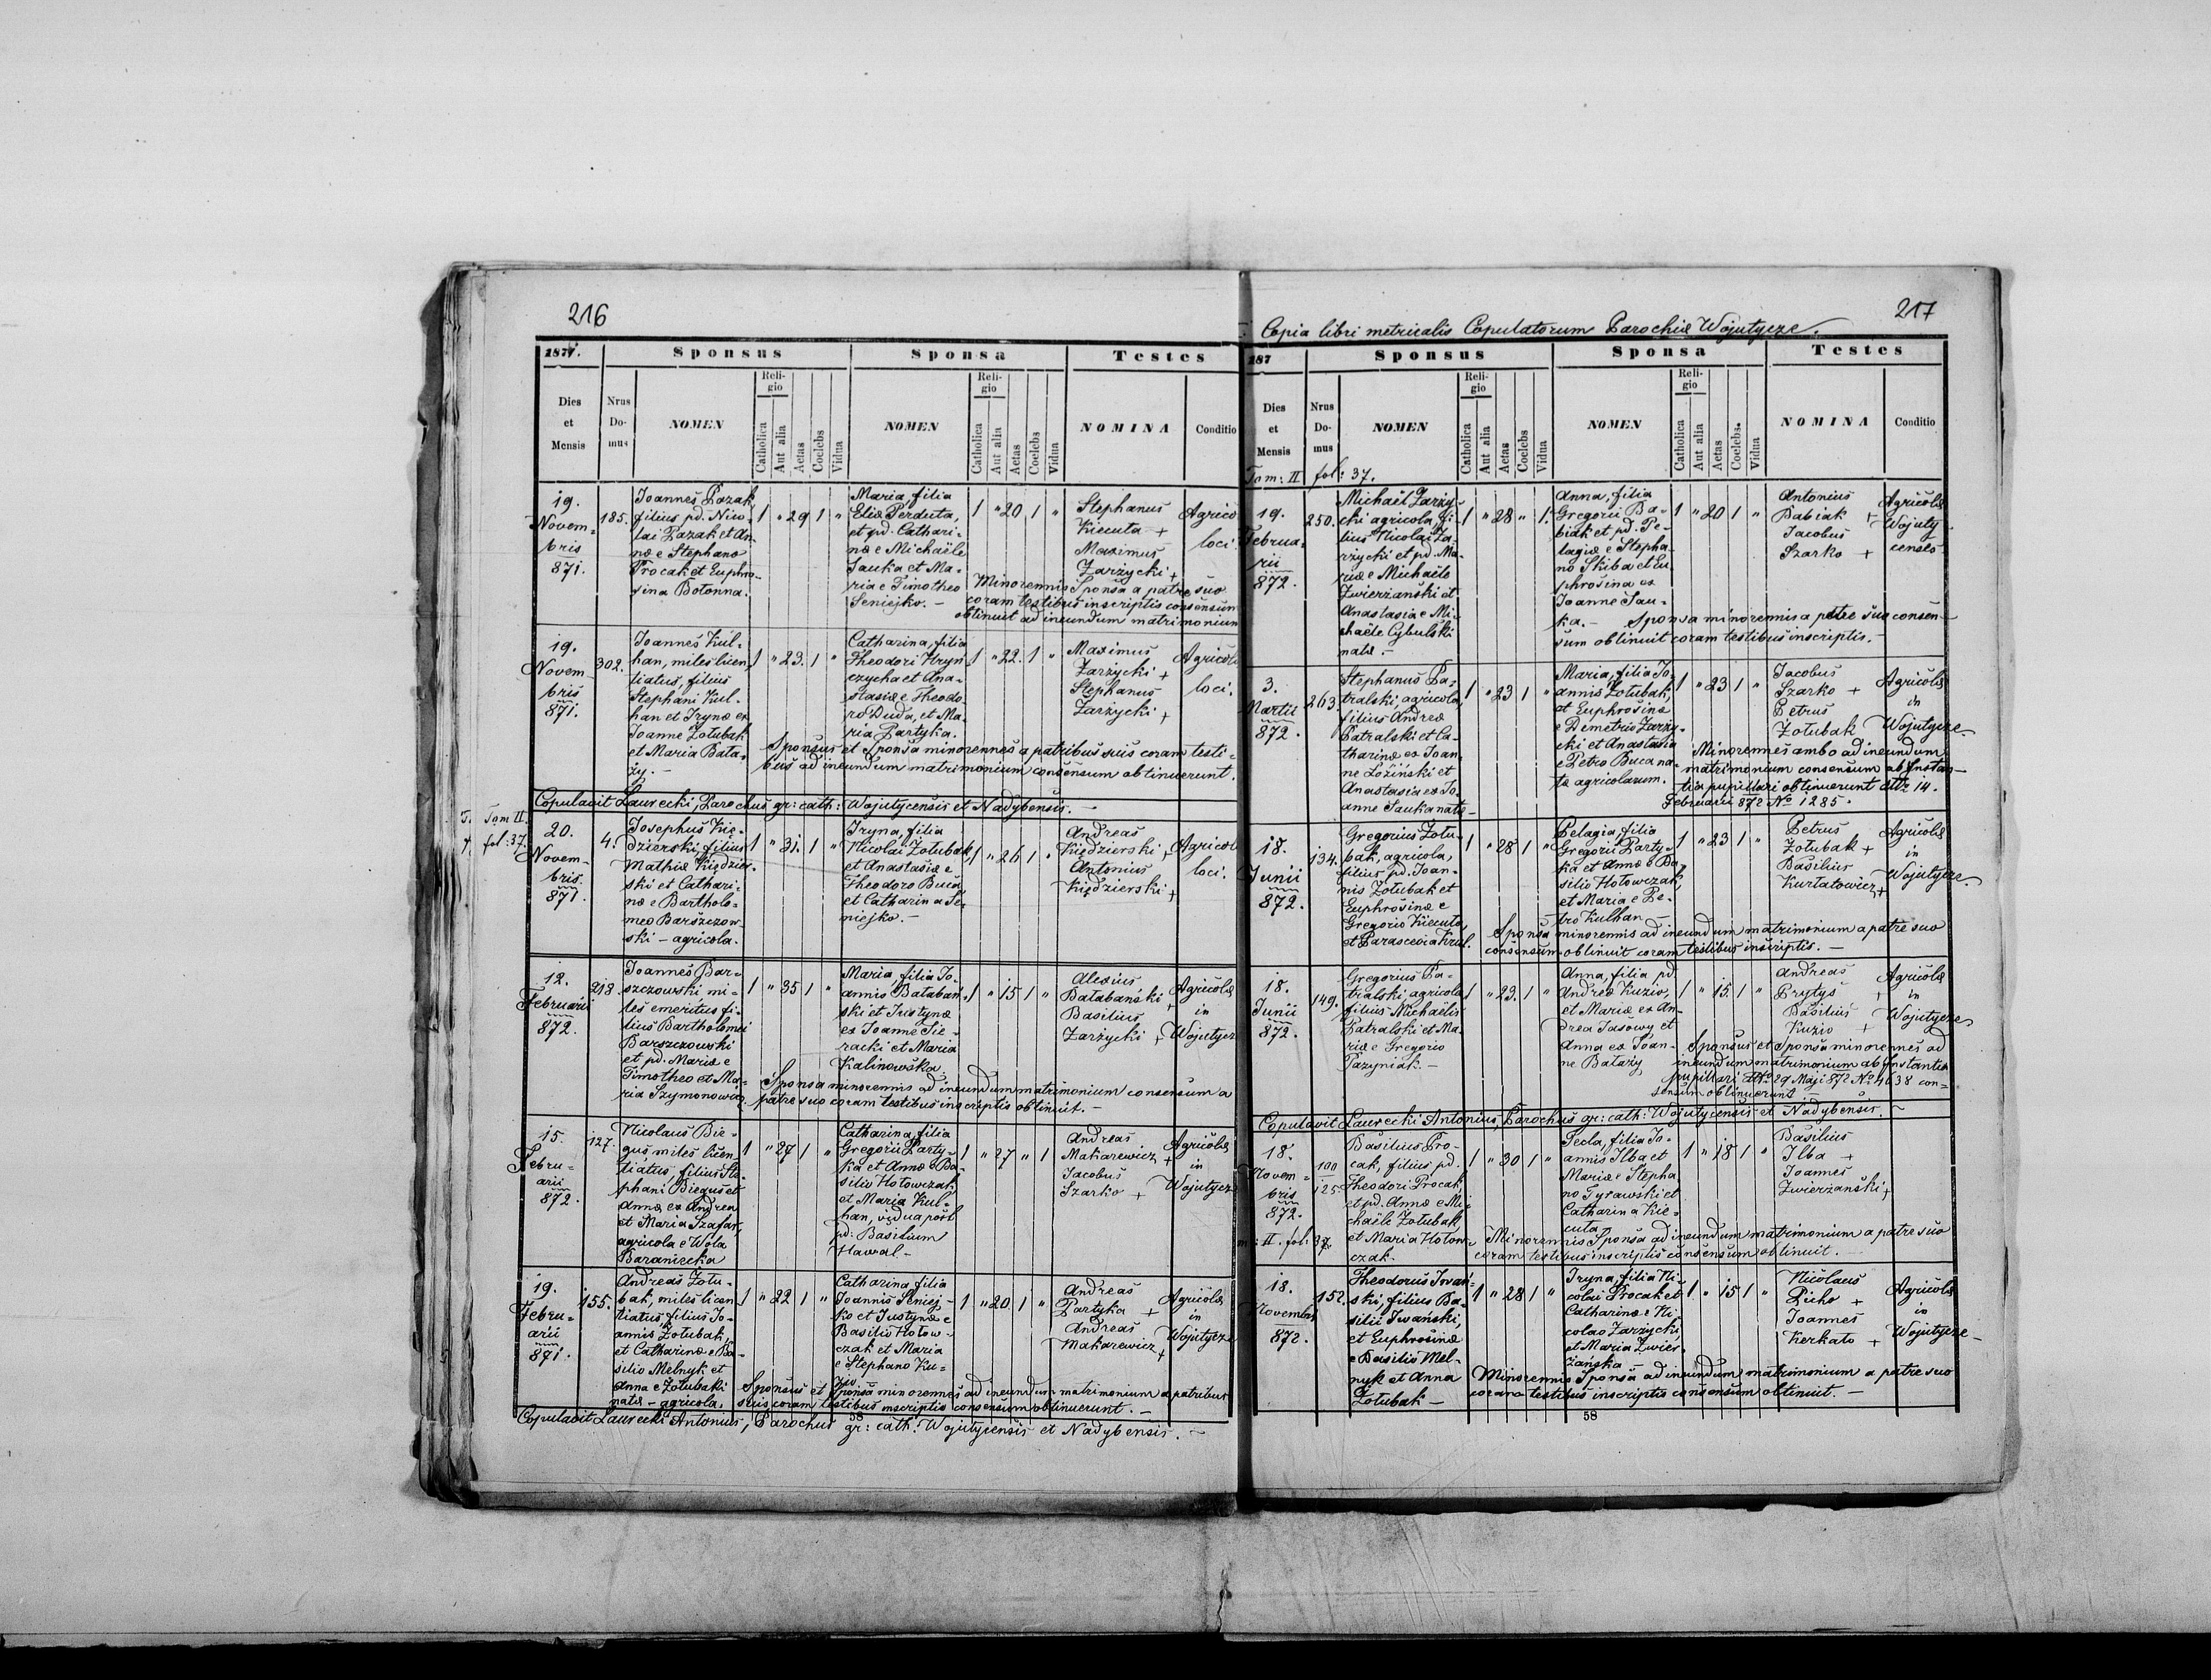 216
1871.
Sponsus
Sponsa
Testes
Dies et Mensis
Nrus Domus
NOMEN
Religio
Catholica
Aut alia
Aetas
Coelebs
Vidua
NOMEN
Religio
Catholica
Aut alia
Aetas
Coelebs
Vidua
NOMINA
Conditio
19.
Novem=
bris
871.
185.
Joannes Pazak,
filius pd. Nico-
lai Pazak et An-
næ e Stephano
Procak et Euphro-
sina Botonna.
1 " 29 1 "
Maria, filia
Eliæ Perduta,
et pd. Cathari-
næ e Michaële
Sauka et Ma-
ria e Timotheo
Seniejko. -
1 " 20 1 "
Stephanus
Kiecuta +
Maximus
Zarzycki +
Agrico
loci.
Minorennis Sponsa a patre suo
coram testibus inscriptis consensum
obtinuit ad ineundum matrimonium
19.
Novem-
bris
871.
302.
Joannes Kul-
han, miles licen
tiatus, filius
Stephani Kul-
han et Irynæ ex
Joanne Zołubak
et Maria Bata-
zy. -
1 " 23. 1 "
Catharina, filia
Theodori Hryn
czycha et Ana-
stasiæ e Theodo-
ro Duda, et Ma-
ria Partyka.
1 " 22. 1 "
Maximus
Zarzycki +
Stephanus
Zarzycki +
Agricol
loci.
Sponsus et Sponsa minorennes a patribus suis coram testi-
bus ad ineundum matrimonium consensum obtinuerunt.
Copulavit Laurecki, Parochus gr: cath: Wojutycensis et Nadybensis. -
Tom II.
fol: 37.
20.
Novem-
bris
871.
4.
Josephus Kię-
dzierski, filius
Mathiæ Kiędzier-
ski et Cathari-
næ e Bartholo-
meo Barszczow-
ski - agricola.
1 " 31. 1 "
Iryna, filia
Nicolai Zołubak,
et Anastasiæ e
Theodoro Buca
et Catharina Se-
niejko. -
1 " 26 1 "
Andreas
Kiędzierski +
Antonius
Kiędzierski +
Agricol
loci.
12.
Februarii
872.
218.
Joannes Bar-
szczowski mi-
les emeritus fi-
lius Bartholomei
Barszczowski
et pd. Mariæ e
Timotheo et Ma-
ria Szymonowicz.
1 " 35 1 "
Maria, filia Jo-
annis Batabań-
ski et Justynæ
ex Joanne Sie-
racki et Maria
Kalinowska.
1 " 15 1 "
Alexius
Batabański +
Basilius
Zarzycki +
Agricolæ
in
Wojutycz
Sponsa minorennis ad ineundum matrimonium consensum a
patre suo coram testibus inscriptis obtinuit. -
15.
Febru-
arii
872.
127.
Nicolaus Bie-
gus miles licen-
tiatus, filius Ste-
phani Biegus et
Annæ ex Andrea
et Maria Szafar,
agricola e Wola
Baraniecka
1 " 27 1 "
Catharina, filia
Gregorii Party-
ka et Annæ e Ba-
silio Hotowczak
et Maria Kul-
han, vidua post
pd: Basilium
Hawal -
1 " 27 " 1
Andreas
Makarewicz +
Jacobus
Szarko +
Agricolæ
in
Wojutycz
19.
Febru-
arii
871.
155.
Andreas Zołu-
bak, miles licen
tiatus, filius Jo-
annis Zołubak,
et Catharinæ e Ba-
silio Melnyk et
Anna e Zołubaki
natis - agricola.
1 " 22 1 "
Catharina, filia
Joannis Seniej-
ko et Justynæ e
Basilio Hotow-
czak et Maria
e Stephano Ku-
zio
1 " 20 1 "
Andreas
Partyka +
Andreas
Makarewicz +
Agricolæ
in
Wojutycze
Sponsus et Sponsa minorennes ad ineundum matrimonium a patribus
suis coram testibus inscriptis consensum obtinuerunt. -
58
Copulavit Laurecki Antonius, Parochus gr: cath: Wojutycensis et Nadybensis. -
217
Copia libri metricalis Copulatorum Parochiæ Wojutycze.
187
Sponsus
Sponsa
Testes
Dies et Mensis
Nrus Domus
NOMEN
Religio
Catholica
Aut alia
Aetas
Coelebs
Vidua
NOMEN
Religio
Catholica
Aut alia
Aetas
Coelebs.
Vidua
NOMINA
Conditio
Tom: II fol: 37.
19.
Februa-
rii
872.
250.
Michaël Zarzy-
cki agricola, fi-
lius Nicolai Za-
rzycki et pd. Ma-
riæ e Michaële
Zwierzański et
Anastasia e Mi-
chaële Cybulski
natæ. -
1 " 28 " 1.
Anna, filia
Gregorii Ba-
biak et pd. Pe-
lagiæ e Stepha-
no Skiba et Eu-
phrosina ex
Joanne Sau-
ka. -
1 " 20 1 "
Antonius
Babiak +
Jacobus
Szarko +
Agricolæ
Wojuty
censes
Sponsa minorennis a patre suo consen-
sum obtinuit coram testibus inscriptis. -
3.
Martii
872.
263.
Stephanus Pa-
tralski, agricola,
filius Andreæ
Patralski et Ca-
tharinæ ex Joan-
ne Łoziński et
Anastasia ex Jo-
anne Sauka natæ -
1 " 23 1 "
Maria, filia Jo-
annis Zołubak,
et Euphrosinæ
e Demetrio Zarzy-
cki et Anastasia
e Petro Buca na-
tæ agricolarum.
1 " 23 1 "
Jacobus
Szarko +
Petrus
Zołubak
Agricolæ
in
Wojutycze
Minorennes ambo ad ineundum
matrimonium consensum ab Instan-
tia pupillari obtinuerunt dtto 14.
Februarii 872 No 1285.
18.
Junii
872.
134.
Gregorius Zołu-
bak, agricola,
filius pd. Joan-
nis Zołubak et
Euphrosinæ e
Gregorio Kiecuta
et Parascevia Krul.
1 " 28 1 "
Pelagia, filia
Gregorii Party-
ka et Annæ e Ba-
silio Hotowczak,
et Maria e Pe-
tro Kulhan
1 " 23 1 "
Petrus
Zołubak +
Basilius
Kurtatowicz +
Agricolæ
in
Wojutycze.
Sponsa minorennis ad ineundum matrimonium a patre suo
consensum obtinuit coram testibus inscriptis. -
18.
Junii
872.
149.
Gregorius Pa-
tralski agricola
filius Michaëlis
Patralski et Ma-
riæ e Gregorio
Pazyniak. -
1 " 23. 1 "
Anna, filia pd.
Andreæ Kuzio,
et Mariæ ex An-
drea Jasowy et
Anna ex Joan-
ne Batary
1 " 15. 1 "
Andreas
Prytys +
Basilius
Kuzio +
Agricolæ
in
Wojutycze
Sponsus et Sponsa minorennes ad
ineundum matrimonium ab Instantia
pupillari dtto 29 Maji 872 No 4638 con-
sensum obtinuerunt
Copulavit Laurecki Antonius, Parochus gr: cath: Wojutycensis et Nadybensis. -
18.
Novem-
bris
872.
100
125
m: II. fol: 37.
Basilius Pro-
cak, filius pd.
Theodori Procak,
et pd. Annæ e Mi-
chaële Zołubak
et Maria Hotow-
czak.
1 " 30 1 "
Tecla, filia Jo-
annis Ilba et
Mariæ e Stepha-
no Tyrawski et
Catharina Kie-
cuta
1 " 18 1 "
Basilius
Ilba +
Joannes
Zwierzański +
Minorennis Sponsa ad ineundum matrimonium a patre suo
coram testibus inscriptis consensum obtinuit. -
18.
Novembris
872.
152.
Theodorus Iwań-
ski, filius Ba-
silii Iwański,
et Euphrosinæ
e Basilio Mel-
nyk et Anna
Zołubak -
1 " 28 1 "
Iryna, filia Ni-
colai Procak et
Catharinæ e Ni-
colao Zarzycki,
et Maria Zwier-
zańska
1 " 15 1 "
Nicolaus
Picho +
Joannes
Kerkato +
Agricolæ
in
Wojutycze -
Minorennis Sponsa ad ineundum matrimonium a patre suo
coram testibus inscriptis consensum obtinuit. -
58